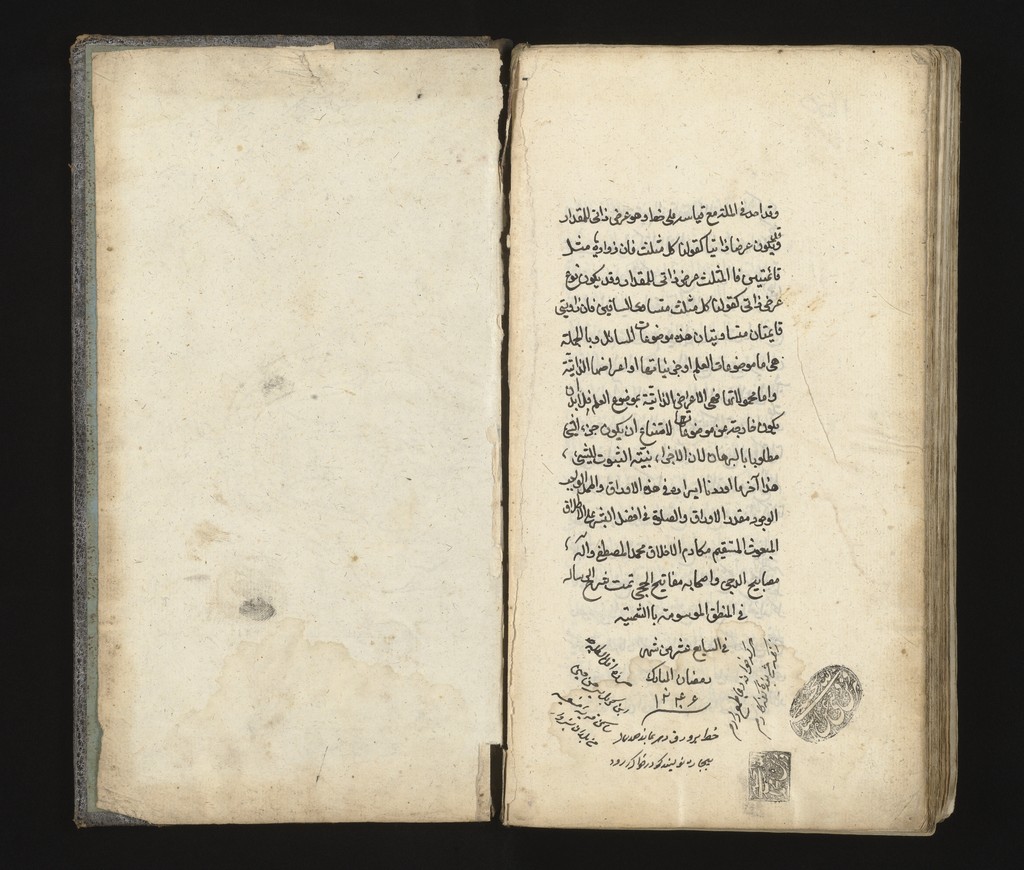 وقد اخذ فى المثلث مع قياسه على خط وهو عرض ذاتى للمقدار
وقد يكون عرضا ذاتيا كقولنا كل مثلث فان زواياه مثل
قائمتين فالمثلث عرض ذاتى للمقدار وقد يكون نوع
عرض ذاتى كقولنا كل مثلث متساوى الساقين فان زاويتى
قايمتان متساويتان هذه موضوعات المسائل وبالجملة
هى اما موضوعات العلم او جزئياتها او اعراضها الذاتيّة
واما محمولاتها فهى الاعراض الذاتيّة بموضوع العلم فلا بد ان
يكون خارجة عن موضوعاتها لامتناع ان يكون جزء الشئ
مطلوبا بالبرهان لان الاجزاء بيّنة الثبوت للشئ
هذا آخر ما اوردنا ايراده فى هذه الاوراق والحمد لواجب
الوجود مقدر الاوراق والصلوة فى افضل البشر على الاطلاق
المبعوث المتقيم مكارم الاخلاق محمد المصطفى وآله
مصابيح الدجى واصحابه مفاتيح الحجى تمت شرح الرساله
فى المنطق الموسومة بالشمسيّة
فى السابع عشر من شهر
رمضان المبارك
١٢٤٦
هر كه خواند دعا طمع دارم
زانكه من بنده گنه كارم
خط بر ورق دهر بماند صد سال
بيچاره نويسنده كه در خاك رود